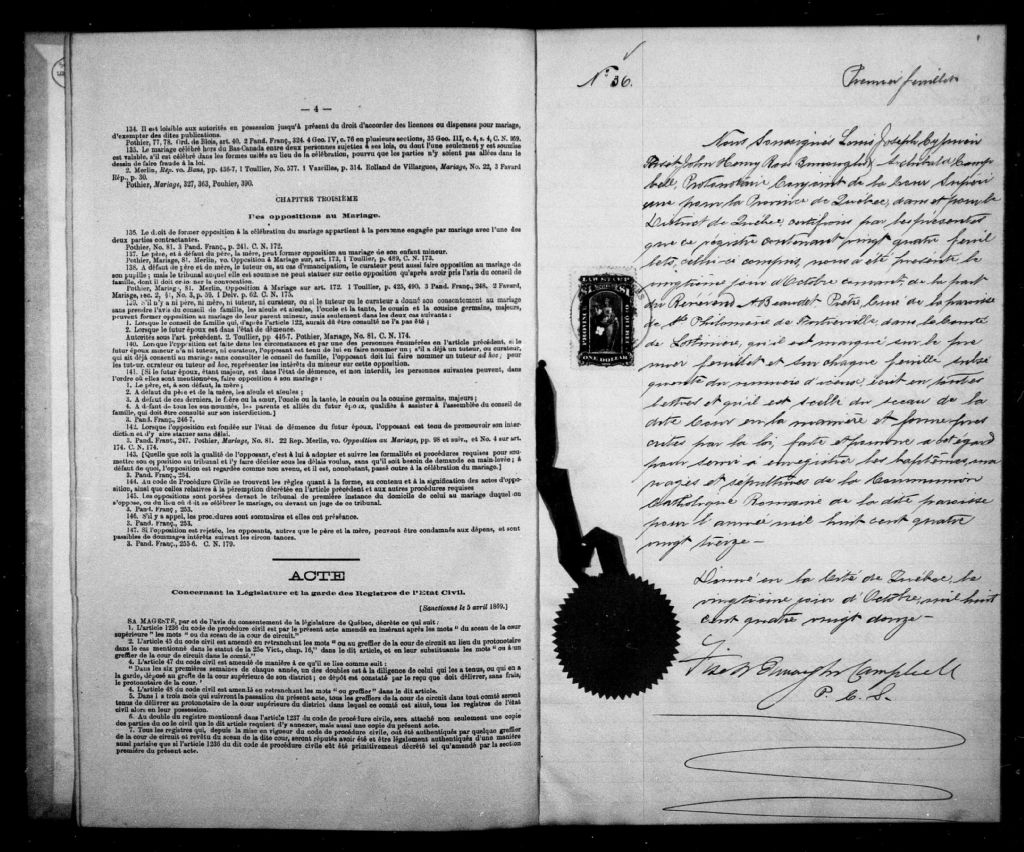 — 4 —
134. Il est loisible aux autorités en possession jusqu'à présent du droit d'accorder des licences ou dispenses pour mariage,
d'exempter des dites publications.
Pothier, 77, 78. Ord. de Blois, art. 40. 2 Pand. Franç., 324. 4 Geo. IV, c. 76 en plusieurs sections, 35 Geo. III, c. 4, s. 4, C. N. 169.
135. Le mariage célébré hors du Bas-Canada entre deux personnes sujettes à ses lois, ou dont l'une seulement y est soumise
est valable, s'il est célébré dans les formes usitées au lieu de la célébration, pourvu que les parties n'y soient pas allées dans le
dessin de faire fraude à la loi.
2. Merlin, Rép. vo. Bans, pp. 436-7, 1 Toullier, No. 577. 1 Vazeilles, p. 314. Rolland de Villargues, Mariage, No. 22, 3 Favard
Rép., p. 30.
Pothier, Mariage, 327, 363, Pouhier, 390.
CHAPITRE TROISIÈME
Des oppositions au Mariage.
136. Le droit de former opposition à la célébration du mariage appartient à la personne engagée par mariage avec l'une des
deux parties contractantes.
Pothier, No. 81. 3 Pand. Franç., p. 241. C. N. 172.
137. Le père, et à défaut du père, la mère, peut former opposition au mariage de son enfant mineur.
Pothier, Mariage, 81. Merlin, vo. Opposition à Mariage sur, art. 173, 1 Toullier, p. 489, C. N. 173.
138. A défaut de père et de mère, le tuteur ou, au cas d'émancipation, le curateur peut aussi faire opposition au mariage de
son pupille ; mais le tribunal auquel elle est soumise ne peut statuer sur cette opposition qu'après avoir pris l'avis du conseil de
famille, dont il doit ordonner la convocation.
Pothier, Mariage, 81. Merlin, Opposition à Mariage sur art. 172. 1 Toullier, p. 425, 490, 3 Pand. Franç., 248. 2 Favard,
Mariage, sec. 2, § 1, No. 3, p. 59. 1 Delv. p. 62. C. N. 175.
139. S'il n'y a ni père, ni mère, ni tuteur, ni curateur, ou si le tuteur ou le curateur a donné son consentement au mariage
sans prendre l'avis du conseil de famille, les aïeuls et aïeules, l'oncle et la tante, le cousin et la cousine germains, majeurs,
peuvent former opposition au mariage de leur parent mineur, mais seulement dans les deux cas suivants :
1. Lorsque le conseil de famille qui, d'après l'article 122, aurait dû être consulté ne l'a pas été ;
2. Lorsque le futur époux est dans l'état de démence.
Autorités sous l'art. précédent. 2. Toullier, pp 446-7. Pothier, Mariage, No. 81. C. N. 174.
140. Lorsque l'opposition est faite dans les circonstances et par une des personnes énumérées en l'article précédent, si le
futur époux mineur n'a ni tuteur, ni curateur, l'opposant est tenu de lui en faire nommer un ; s'il a déjà un tuteur, ou curateur,
qui ait déjà consenti au mariage sans consulter le conseil de famille, l'opposant doit lui faire nommer un tuteur ad hoc ; pour
les tuteur, curateur ou tuteur ad hoc, représenter les intérêts du mineur sur cette opposition.
141. [Si le futur époux, étant majeur, est dans l'état de démence, et non interdit, les personnes suivantes peuvent, dans
l'ordre où elles sont mentionnées, faire opposition à son mariage :
1. Le père, et, à son défaut, la mère ;
2. A défaut du père et de la mère, les aïeuls et aïeules ;
3. A défaut de ces derniers, le frère ou la sœur, l'oncle ou la tante, le cousin ou la cousine germains, majeurs ;
4. A défaut de tous les sus nommés, les parents et alliés du futur époux, qualifiés à assister à l'assemblée du conseil de
famille, qui doit être consulté sur son interdiction.]
3. Pand. Franç., 246-7.
142. Lorsque l'opposition est fondée sur l'état de démence du futur époux, l'opposant est tenu de promouvoir son inter-
diction et d'y faire statuer sans délai.
3. Pand. Franç., 247. Pothier, Mariage, No. 81. 22 Rep. Merlin, vo. Opposition au Mariage, pp. 98 et suiv., et No. 4 sur art.
174. C. N. 174.
143. [Quelle que soit la qualité de l'opposant, c'est à lui à adopter et suivre les formalités et procédures requises pour sou-
mettre son opposition au tribunal et l'y faire décider sous les délais voulus, sans qu'il soit besoin de demande en main-levée ; à
défaut de quoi, l'opposition est regardée comme non avenu, et il est, nonobstant, passé outre à la célébration du mariage.]
3. Pand. Franç., 254.
144. Au code de Procédure Civile se trouvent les règles quant à la forme, au contenu et à la signification des actes d'oppo-
sition, ainsi que celles relatives à la péremption décrétée en l'article précédent et aux autres procédures requises
145. Les oppositions sont portées devant le tribunal de première instance du domicile de celui au mariage duquel on
s'oppose, ou du lieu où doit se célébrer le mariage, ou devant un juge de ce tribunal.
3. Pand. Franç., 253.
146. S'il y a appel, les procédures sont sommaires et elles ont préséance.
3. Pand. Franç., 253.
147. Si l'opposition est rejetée, les opposants, autres que le père et la mère, peuvent être condamnés aux dépens, et sont
passibles de dommages intérêts suivant les circonstances.
3. Pand. Franç., 255-6. C. N. 179.
ACTE
Concernant la Législature et la garde des Registres de l'Etat Civil.
[Sanctionné le 5 avril 1869.]
SA MAGESTÉ, par et de l'avis du consentement de la législature de Québec, décrète ce qui suit :
1. L'article 1236 du code de procédure civil est par le présent acte amendé en insérant après les mots " du sceau de la cour
supérieure " les mots " ou du sceau de la cour de circuit."
2. L'article 45 du code civil est amendé en retranchant les mots " ou au greffier de la cour de circuit au lieu du protonotaire
dans le cas mentionné dans le statut de la 25e Vict., chap. 16," dans le dit article, et en leur substituant les mots " ou à un
greffier de la cour de circuit dans le comté."
4. L'article 47 du code civil est amendé de manière à ce qu'il se lise comme suit :
" Dans les six premières semaines de chaque année, un des doubles est à la diligence de celui qui les a tenus, ou qui en a
la garde, déposé au greffe de la cour supérieure de son district ; ce dépôt est constaté par le reçu que doit délivrer, sans frais,
le protonotaire de la cour."
4. L'article 48 du code civil est amendé en retranchant les mots " ou greffier " dans le dit article.
5. Dans les trois mois qui suivront la passation du présent acte, tous les greffiers de la cour de circuit dans tout comté seront
tenus de délivrer au protonotaire de la cour supérieure du district dans lequel ce comté est situé, tous les registres de l'état
civil alors en leur possession.
6. Au double du registre mentionné dans l'article 1237 du code de procédure civile, sera attaché non seulement une copie
des parties du code civil que le dit article requiert d'y annexer, mais aussi une copie du présent acte.
7. Tous les registres qui, depuis la mise en vigueur du code de procédure civile, ont été authentiqués par quelque greffier
de la cour de circuit et revêtu du sceau de la dite cour, seront réputés avoir été et être légalement authentiqués d'une manière
aussi parfaite que si l'article 1236 du dit code de procédure civile eût été primitivement décrété tel qu'amendé par la section
première du présent acte.
No 36.
Premier feuillet
Nous Soussignés Louis Joseph Cyprien
Fiset John Henry Ross Burroughs & Archibald Camp
bell, Protonotaire Conjoint de la Cour Supéri
eure pour la Province de Québec, dans et pour le
District de Québec, certifions par les présentes
que ce registre contenant vingt quatre feuil
lets, celui-ci compris, nous a été présenté le
vingtième jour d'Octobre courant, de la part
du Révérend A Beaudet Prêtre, Curé de la paroisse
de Ste Philomène de Fortierville, dans le Comté
de Lotbinière, qu'il est marqué sur le pre
mier feuillet et sur chaque feuillet subsé
quent du numéro d'icelui, écrit en toutes
lettres et qu'il est scellé du sceau de la
dite Cour en la manière et forme pres
crites par la loi, faite et pourvue à cet égard
pour servir à enregistrer les baptêmes, ma
riages et sépultures de la Communion
Catholique Romaine de la dite paroisse
pour l'année mil huit cent quatre
vingt treize —
Donné en la Cité de Québec, le
vingtième jour d'Octobre, mil huit
cent quatre vingt douze —
Fiset Burroughs Campbell
P. C. S.
LAW STAMP
ONE DOLLAR